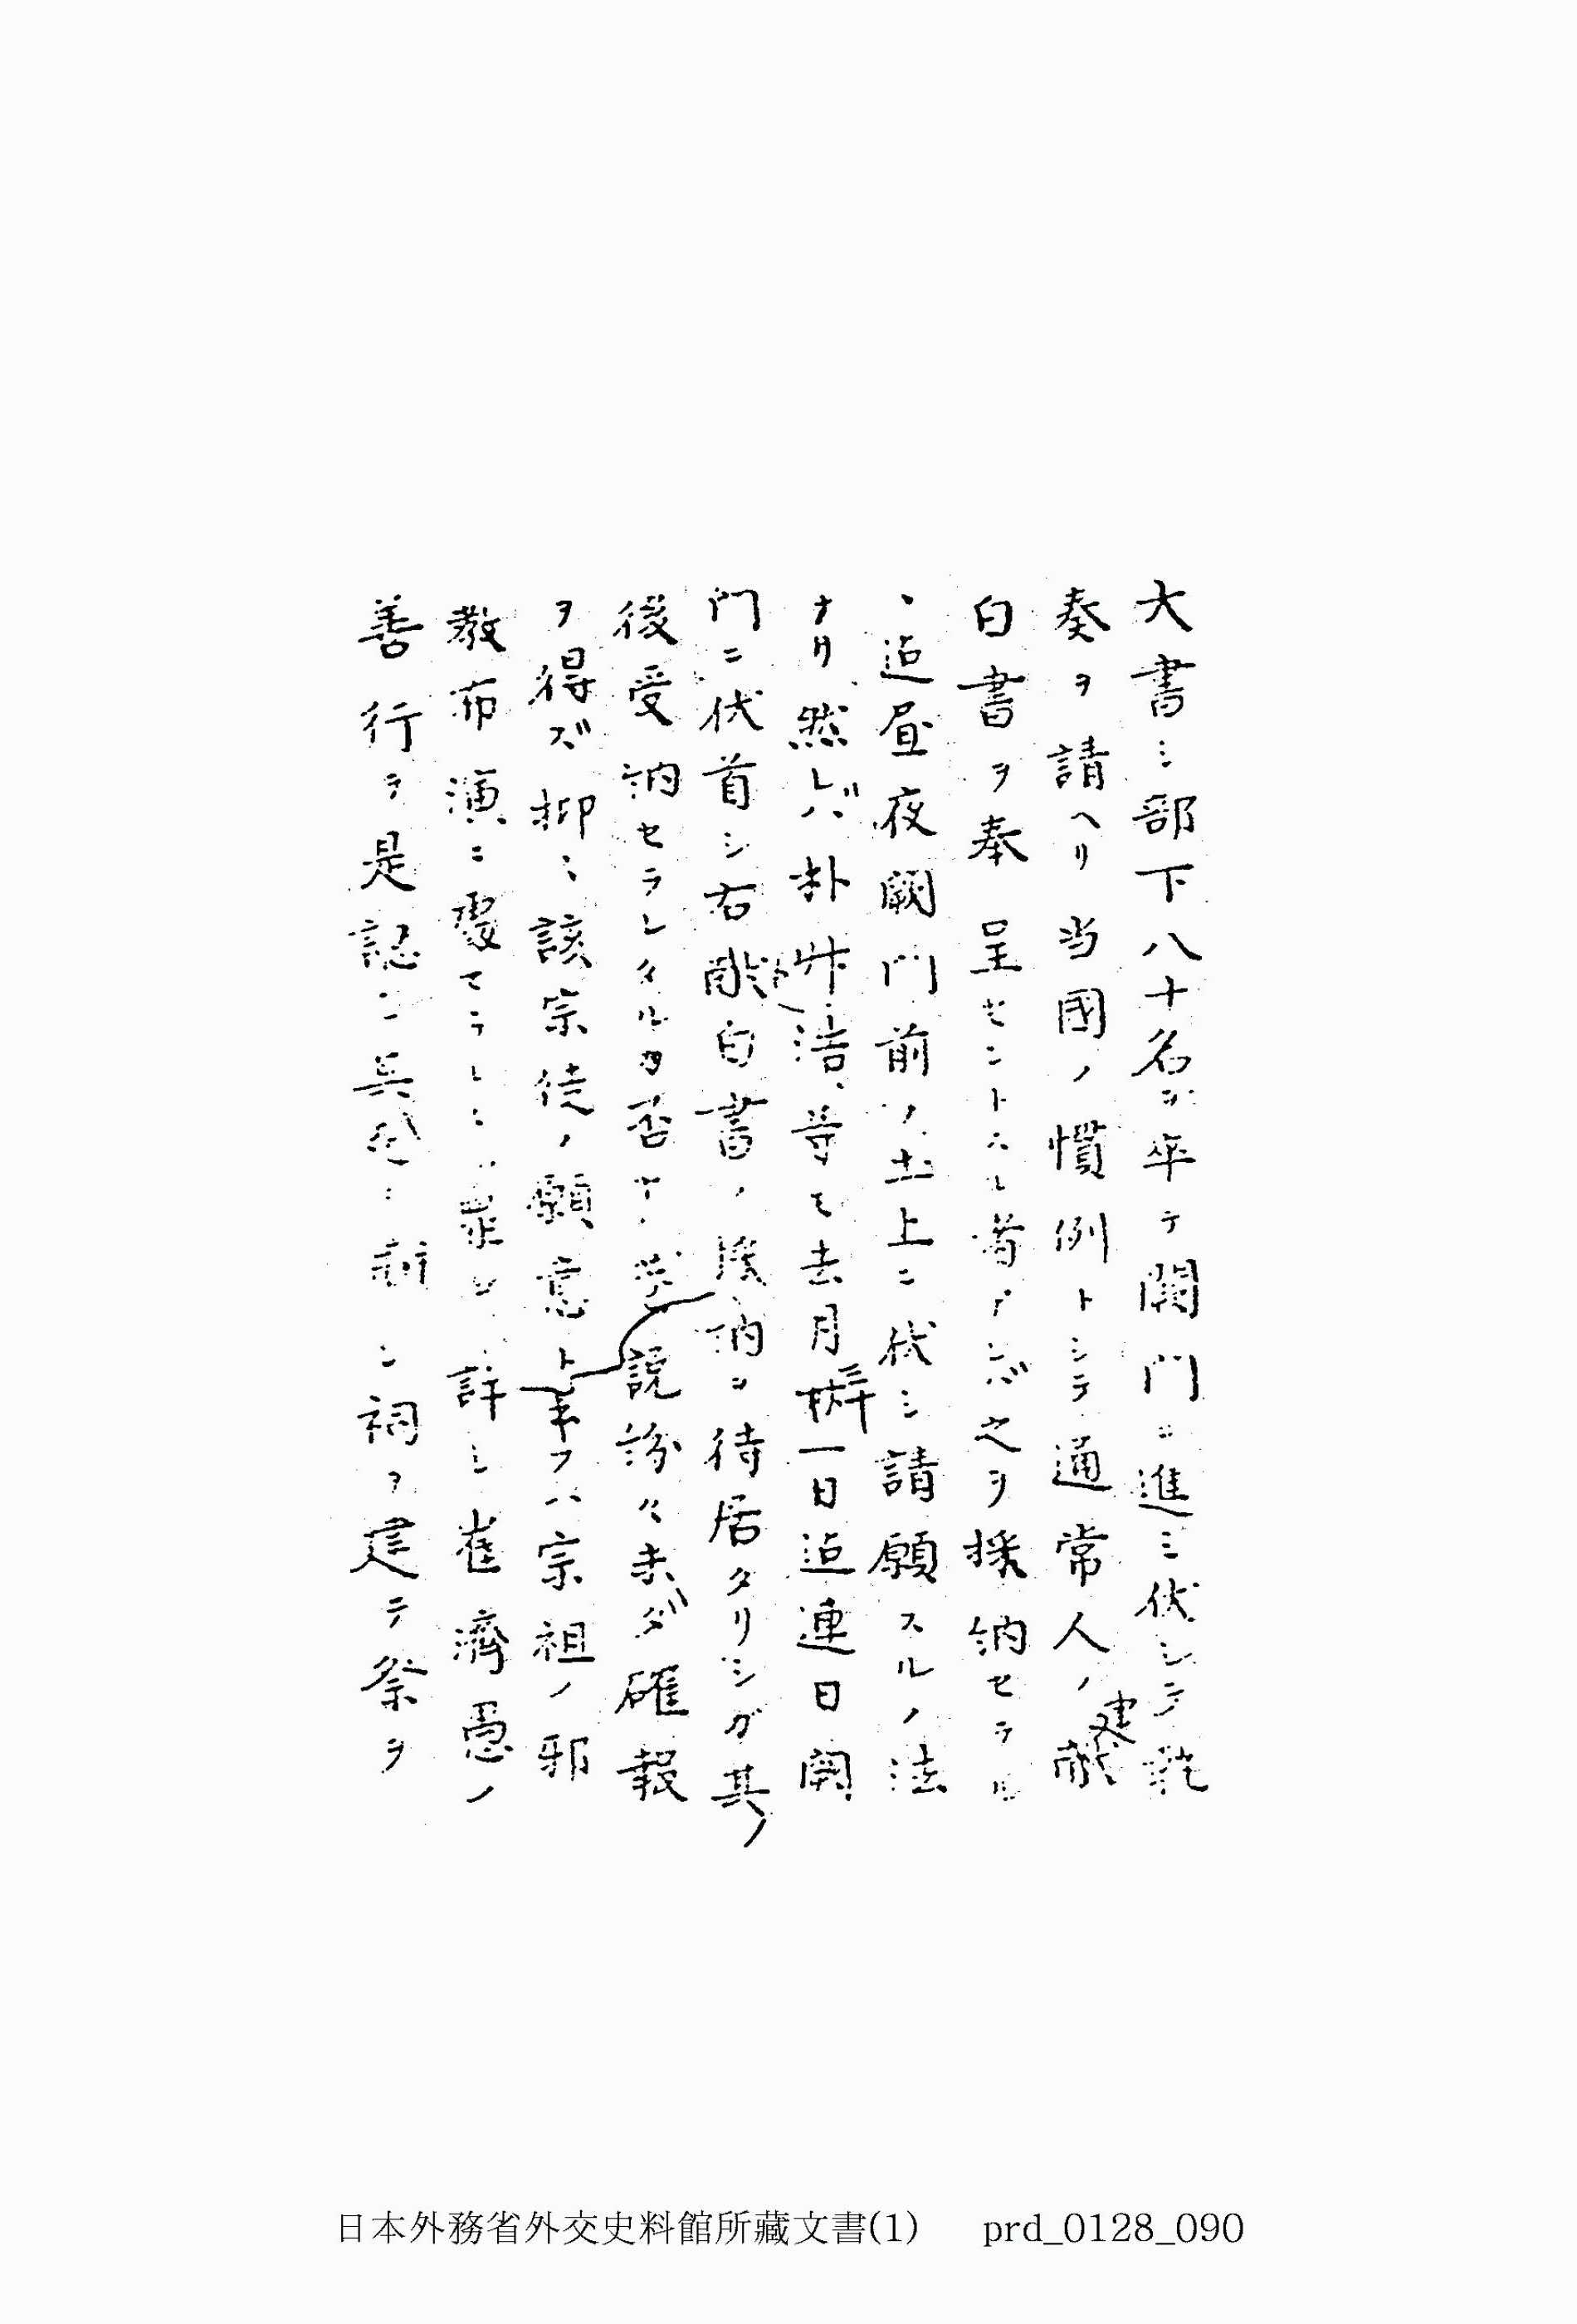 大書シ部下八十名ヲ率テ闕門ニ進ミ伏シテ
奏ヲ請ヘリ当國ノ慣例トシテ通常人ノ建
白書ヲ奉呈セントスル者アレバ之ヲ採納セラル
、迠昼夜闕門前ノ土上ニ伏シ請願スルノ法
ナリ然レバ朴 浩等モ去月三十一日迠連日闕
門ニ伏首シ右 白書ノ採納ヲ待居タリシガ其ノ
後受納セラレタルカ否ヤ 説紛々未ダ確報
ヲ得ズ抑モ該宗徒ノ願意ト云フハ宗祖ノ邪
教布演ニ ラレシ 罪 シ崔濟愚ノ
善行ヲ是認シ 祠ヲ建テ祭ヲ
日本外務省外交史料館所藏文書(1) prd_0128_090